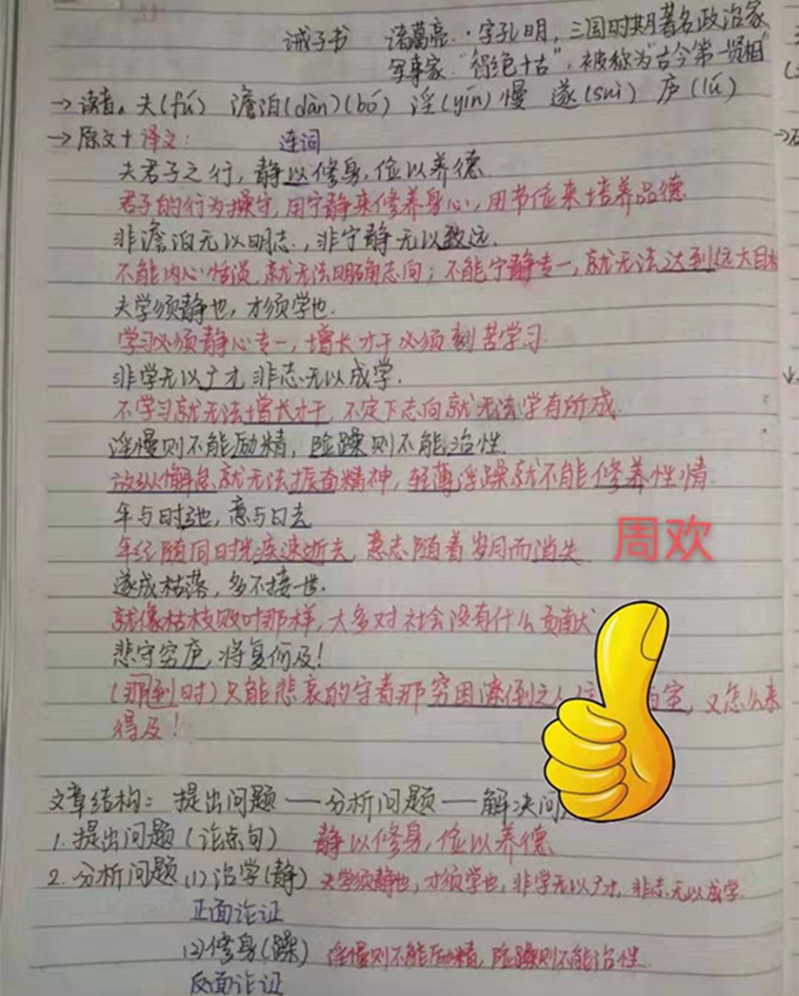 诫子书 诸葛亮.字孔明,三国时期著名政治家
军事家."智绝千古",被称为"古今第一贤相"
→读音。夫(fú) 澹泊(dàn)(bó) 淫(yín)慢 遂(suì) 庐(lú)
→原文+译文: 连词
夫君子之行,静以修身,俭以养德.
君子的行为操守,用宁静来修养身心,用节俭来培养品德.
非澹泊无以明志,非宁静无以致远.
不能内心恬淡,就无法明确志向;不能宁静专一,就无法达到远大目标
夫学须静也,才须学也.
学习必须静心专一,增长才干必须刻苦学习.
非学无以广才,非志无以成学.
不学习就无法增长才干,不定下志向就无法学有所成.
淫慢则不能励精,险躁则不能治性.
放纵懈怠就无法振奋精神,轻薄浮躁就不能修养性情.
年与时驰,意与日去
年纪随同时光疾速逝去,意志随着岁月而消失.
周欢
遂成枯落,多不接世.
就像枯枝败叶那样,大多对社会没有什么贡献
悲守穷庐,将复何及!
(那到时)只能悲哀的守着那穷困潦倒之人,又怎么来
得及!
文章结构:提出问题—分析问题—解决问
1.提出问题(论点句) 静以修身,俭以养德
2.分析问题(1)治学(静) 夫学须静也,才须学也,非学无以广才,非志无以成学.
正面论证
(2)修身(躁) 淫慢则不能励精,险躁则不能治性.
反面论证